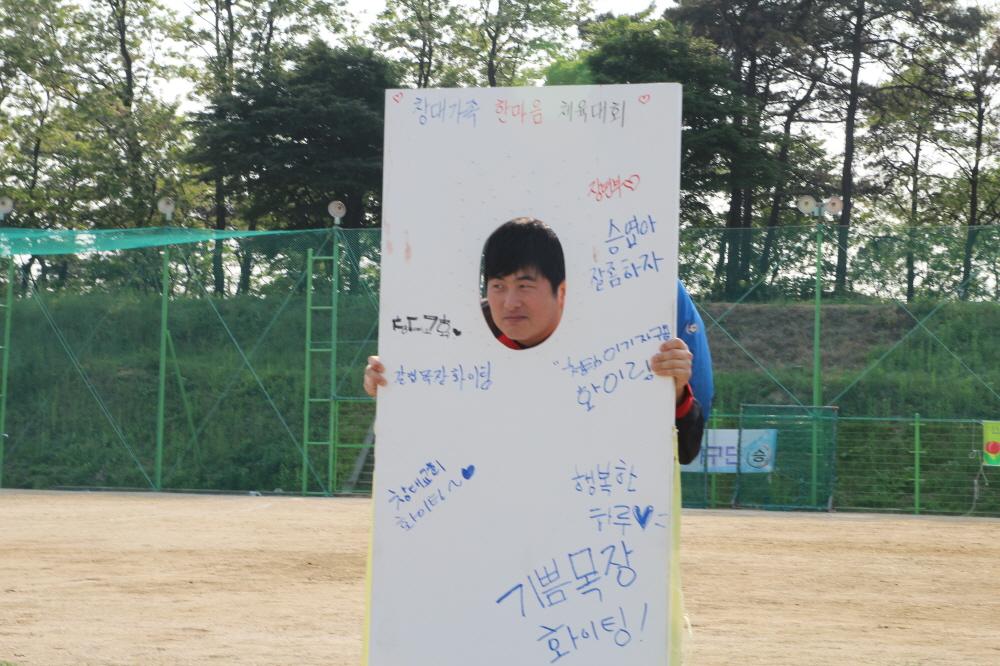 창대가족 한마음 체육대회
장년부
승엽아
잘좀하자
목장 화이팅
이기자구요
화이팅
창대교회
화이팅~
행복한
하루
기쁨목장
화이팅!
구단
승